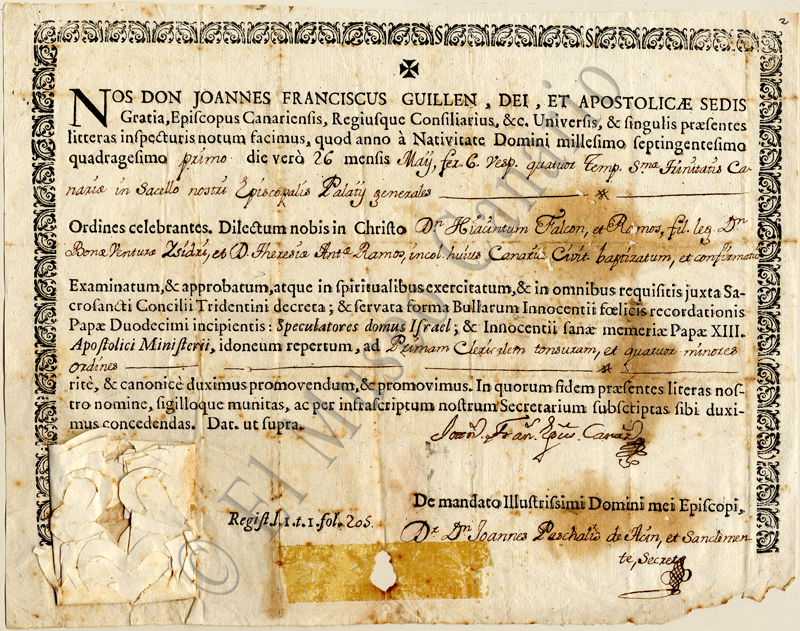 2
NOS DON JOANNES FRANCISCUS GUILLEN, DEI, ET APOSTOLICÆ SEDIS
Gratia, Episcopus Canariensis, Regiusque Consiliarius, &c. Universis, & singulis præsentes
litteras inspecturis notum facimus, quod anno à Nativitate Domini millesimo septingentesimo
quadragesimo primo die verò 26 mensis Maij, fer. 6. Vesp. quatuor Temp. Smæ Trinitatis Ca-
nariæ in Sacello nostri Episcopalis Palatij generales
Ordines celebrantes. Dilectum nobis in Christo Dn Hiacintum Falcon, et Ramos, fil. leg. Dn
Bonæ Venturæ Isidri, et D. Theresiæ Antæ Ramos, incol. huius Canariæ Civit. baptizatum, et confirmatu
Examinatum, & approbatum, atque in spiritualibus exercitatum, & in omnibus requisitis juxta Sa-
crosancti Concilii Tridentini decreta; & servata forma Bullarum Innocentii fœlicis recordationis
Papæ Duodecimi incipientis: Speculatores domus Israel; & Innocentii sanæ memoriæ Papæ XIII.
Apostolici Ministerii, idoneum repertum, ad Primam Clericalem tonsuram, et quatuor minores
ordines
ritè, & canonicè duximus promovendum, & promovimus. In quorum fidem præsentes literas nos-
tro nomine, sigilloque munitas, ac per infrascriptum nostrum Secretarium subscriptas sibi duxi-
mus concedendas. Dat. ut supra.
Joann. Fran. Epus Canar
De mandato Illustrissimi Domini mei Episcopi,
Regist. l. 1. t. 1. fol. 205.
Dr. Dn Joannes Paschalis de Ain, et Sanclemen-
te, Secret
© El Museo Canario